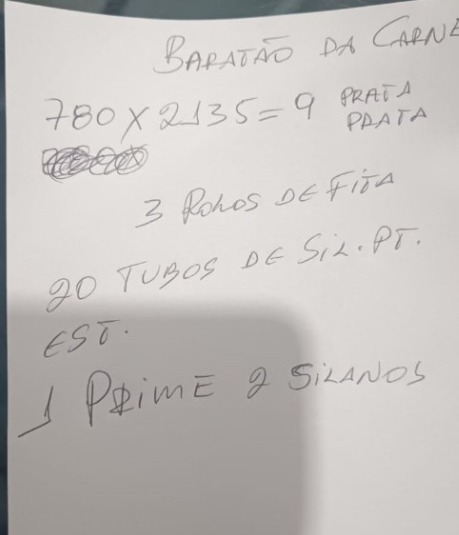 BARATÃO DA CARNE
780 X 2135 = 9 PRATA
PRATA
3 ROLOS DE FITA
20 TUBOS DE SIL. PT.
EST.
1 PRIME 2 SILANOS